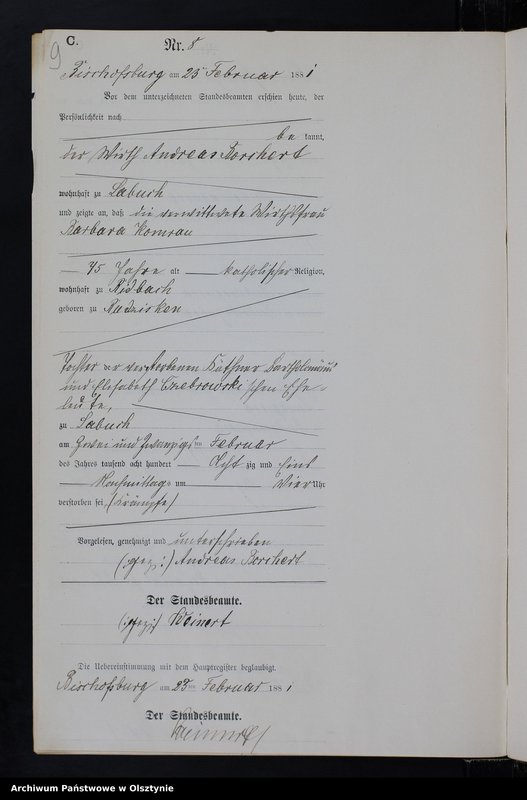 9
C.
Nr. 8
Bischofsburg am 23ten Februar 1881
Vor dem unterzeichneten Standesbeamten erschien heute, der
Persönlichkeit nach
bekannt,
der Wirth Andreas Borchert
wohnhaft zu Labuch
und zeigte an, daß die verwittwete Wirthsfrau
Barbara
75 Jahre alt katholischer Religion,
wohnhaft zu Ridbach
geboren zu
Tochter der verstorbenen Käthner Bartholomäus
und Elisabeth Czebrowski'schen Ehe-
leute,
zu Labuch
am zwei und zwanzigsten Februar
des Jahres tausend acht hundert Achtzig und Eins
Nachmittags um Vier Uhr
verstorben sei (Krämpfe)
Vorgelesen, genehmigt und unterschrieben
(:gez:) Andreas Borchert
Der Standesbeamte.
(:gez:) Weinert
Die Uebereinstimmung mit dem Hauptregister beglaubigt.
Bischofsburg am 23ten Februar 1881
Der Standesbeamte.
Weinert
Archiwum Państwowe w Olsztynie